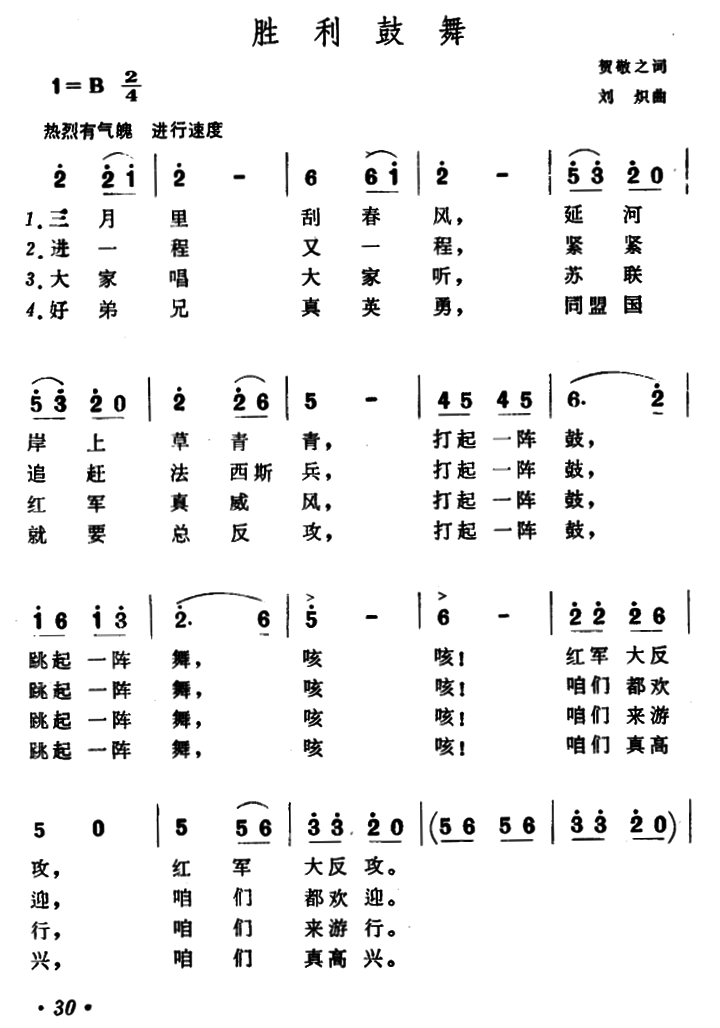 胜利鼓舞
贺敬之词
1=B 2/4
刘炽曲
热烈有气魄 进行速度
2 2 1 | 2 - | 6 6 1 | 2 - | 5 3 2 0 |
1.三月里 刮春风, 延河
2.进一程 又一程, 紧紧
3.大家唱 大家听, 苏联
4.好弟兄 真英勇, 同盟国
5 3 2 0 | 2 2 6 | 5 - | 4 5 4 5 | 6. 2 |
岸上草青青, 打起一阵鼓,
追赶法西斯兵, 打起一阵鼓,
红军真威风, 打起一阵鼓,
就要总反攻, 打起一阵鼓,
1 6 1 3 | 2. 6 | 5 - | 6 - | 2 2 2 6 |
跳起一阵舞, 咳 咳! 红军大反
跳起一阵舞, 咳 咳! 咱们都欢
跳起一阵舞, 咳 咳! 咱们来游
跳起一阵舞, 咳 咳! 咱们真高
5 0 | 5 5 6 | 3 3 2 0 | (5 6 5 6 | 3 3 2 0) |
攻, 红军大反攻。
迎, 咱们都欢迎。
行, 咱们来游行。
兴, 咱们真高兴。
·30·